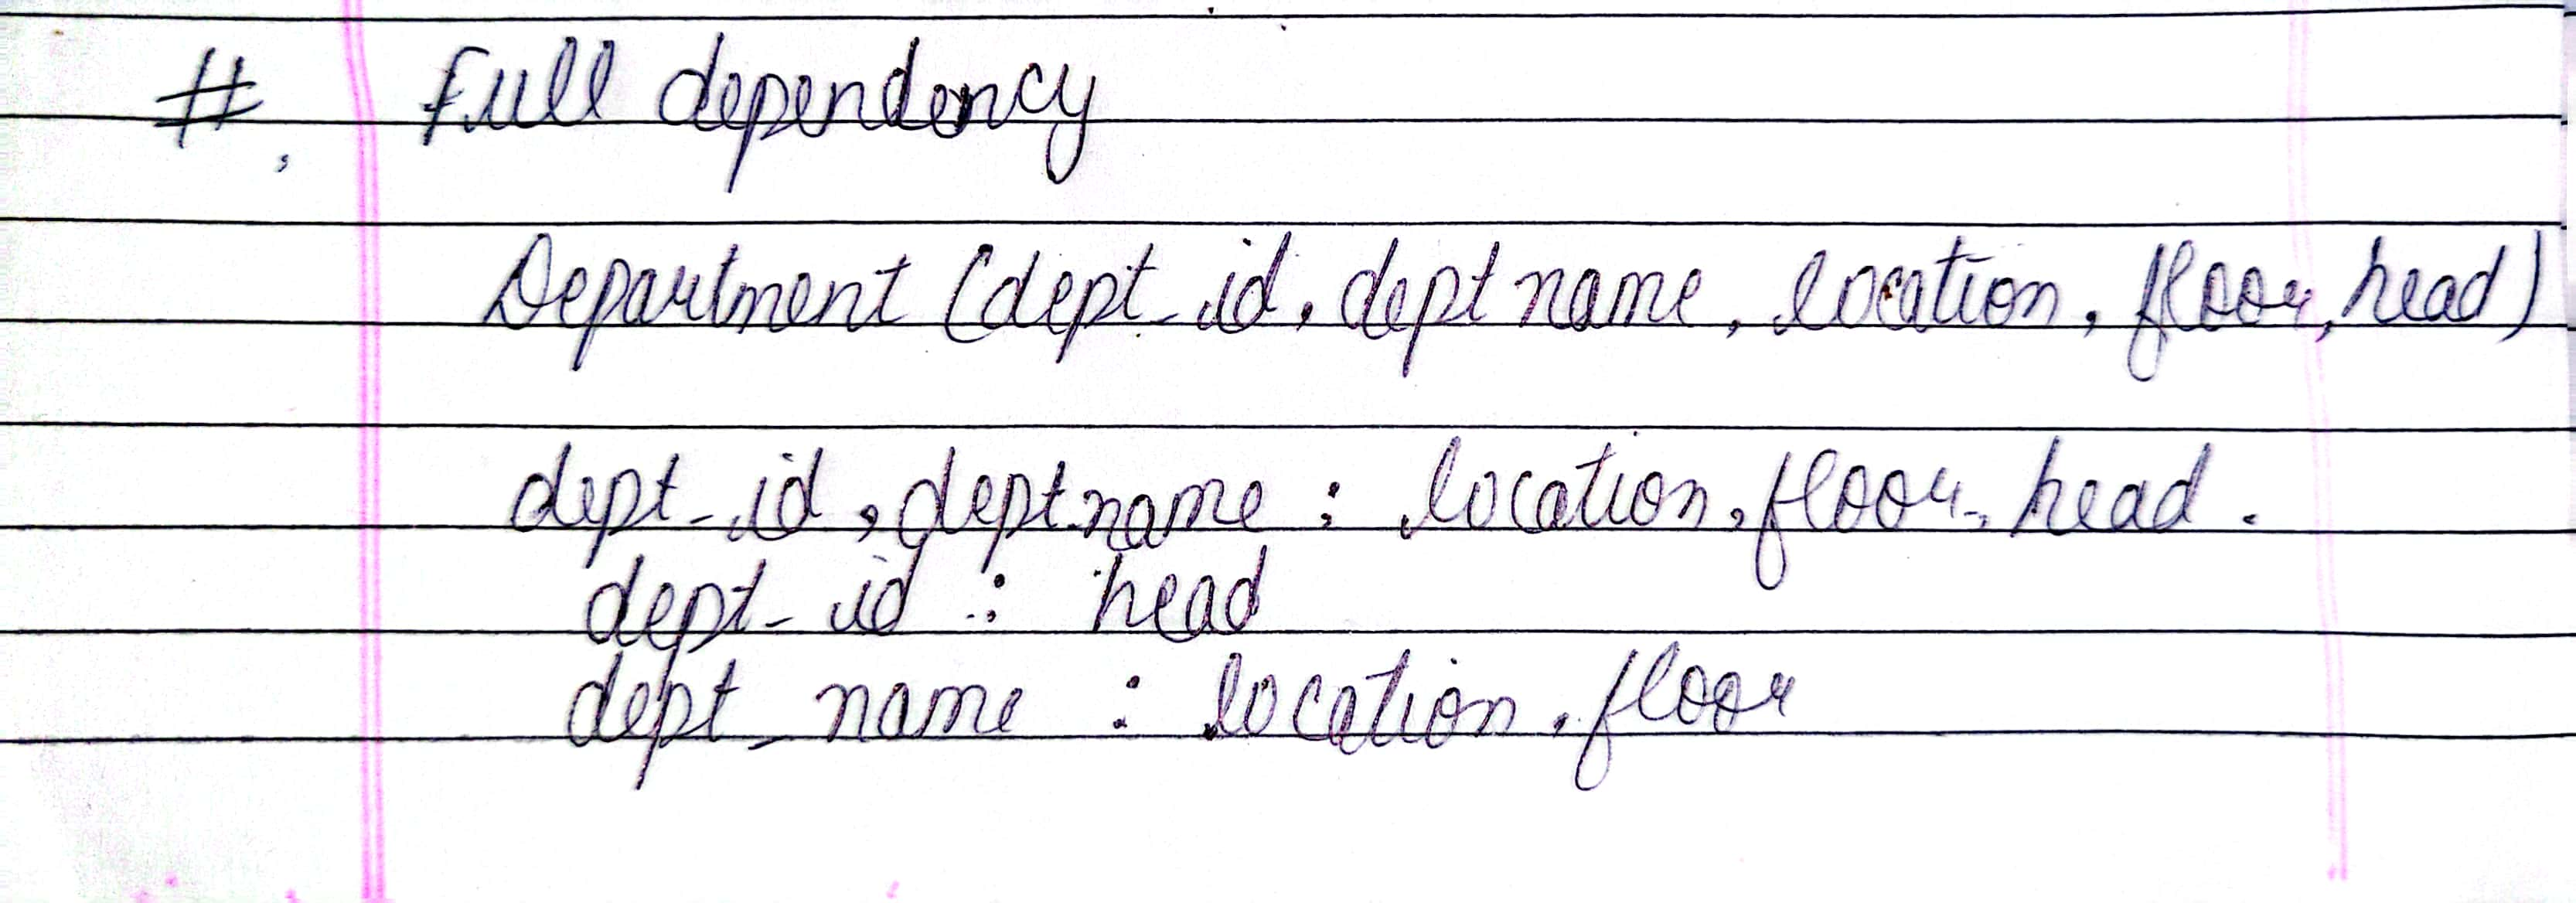 #, Full dependency
Department (dept_id, deptname, location, floor, head)
dept_id, deptname : location, floor, head.
dept_id : head
dept_name : location, floor